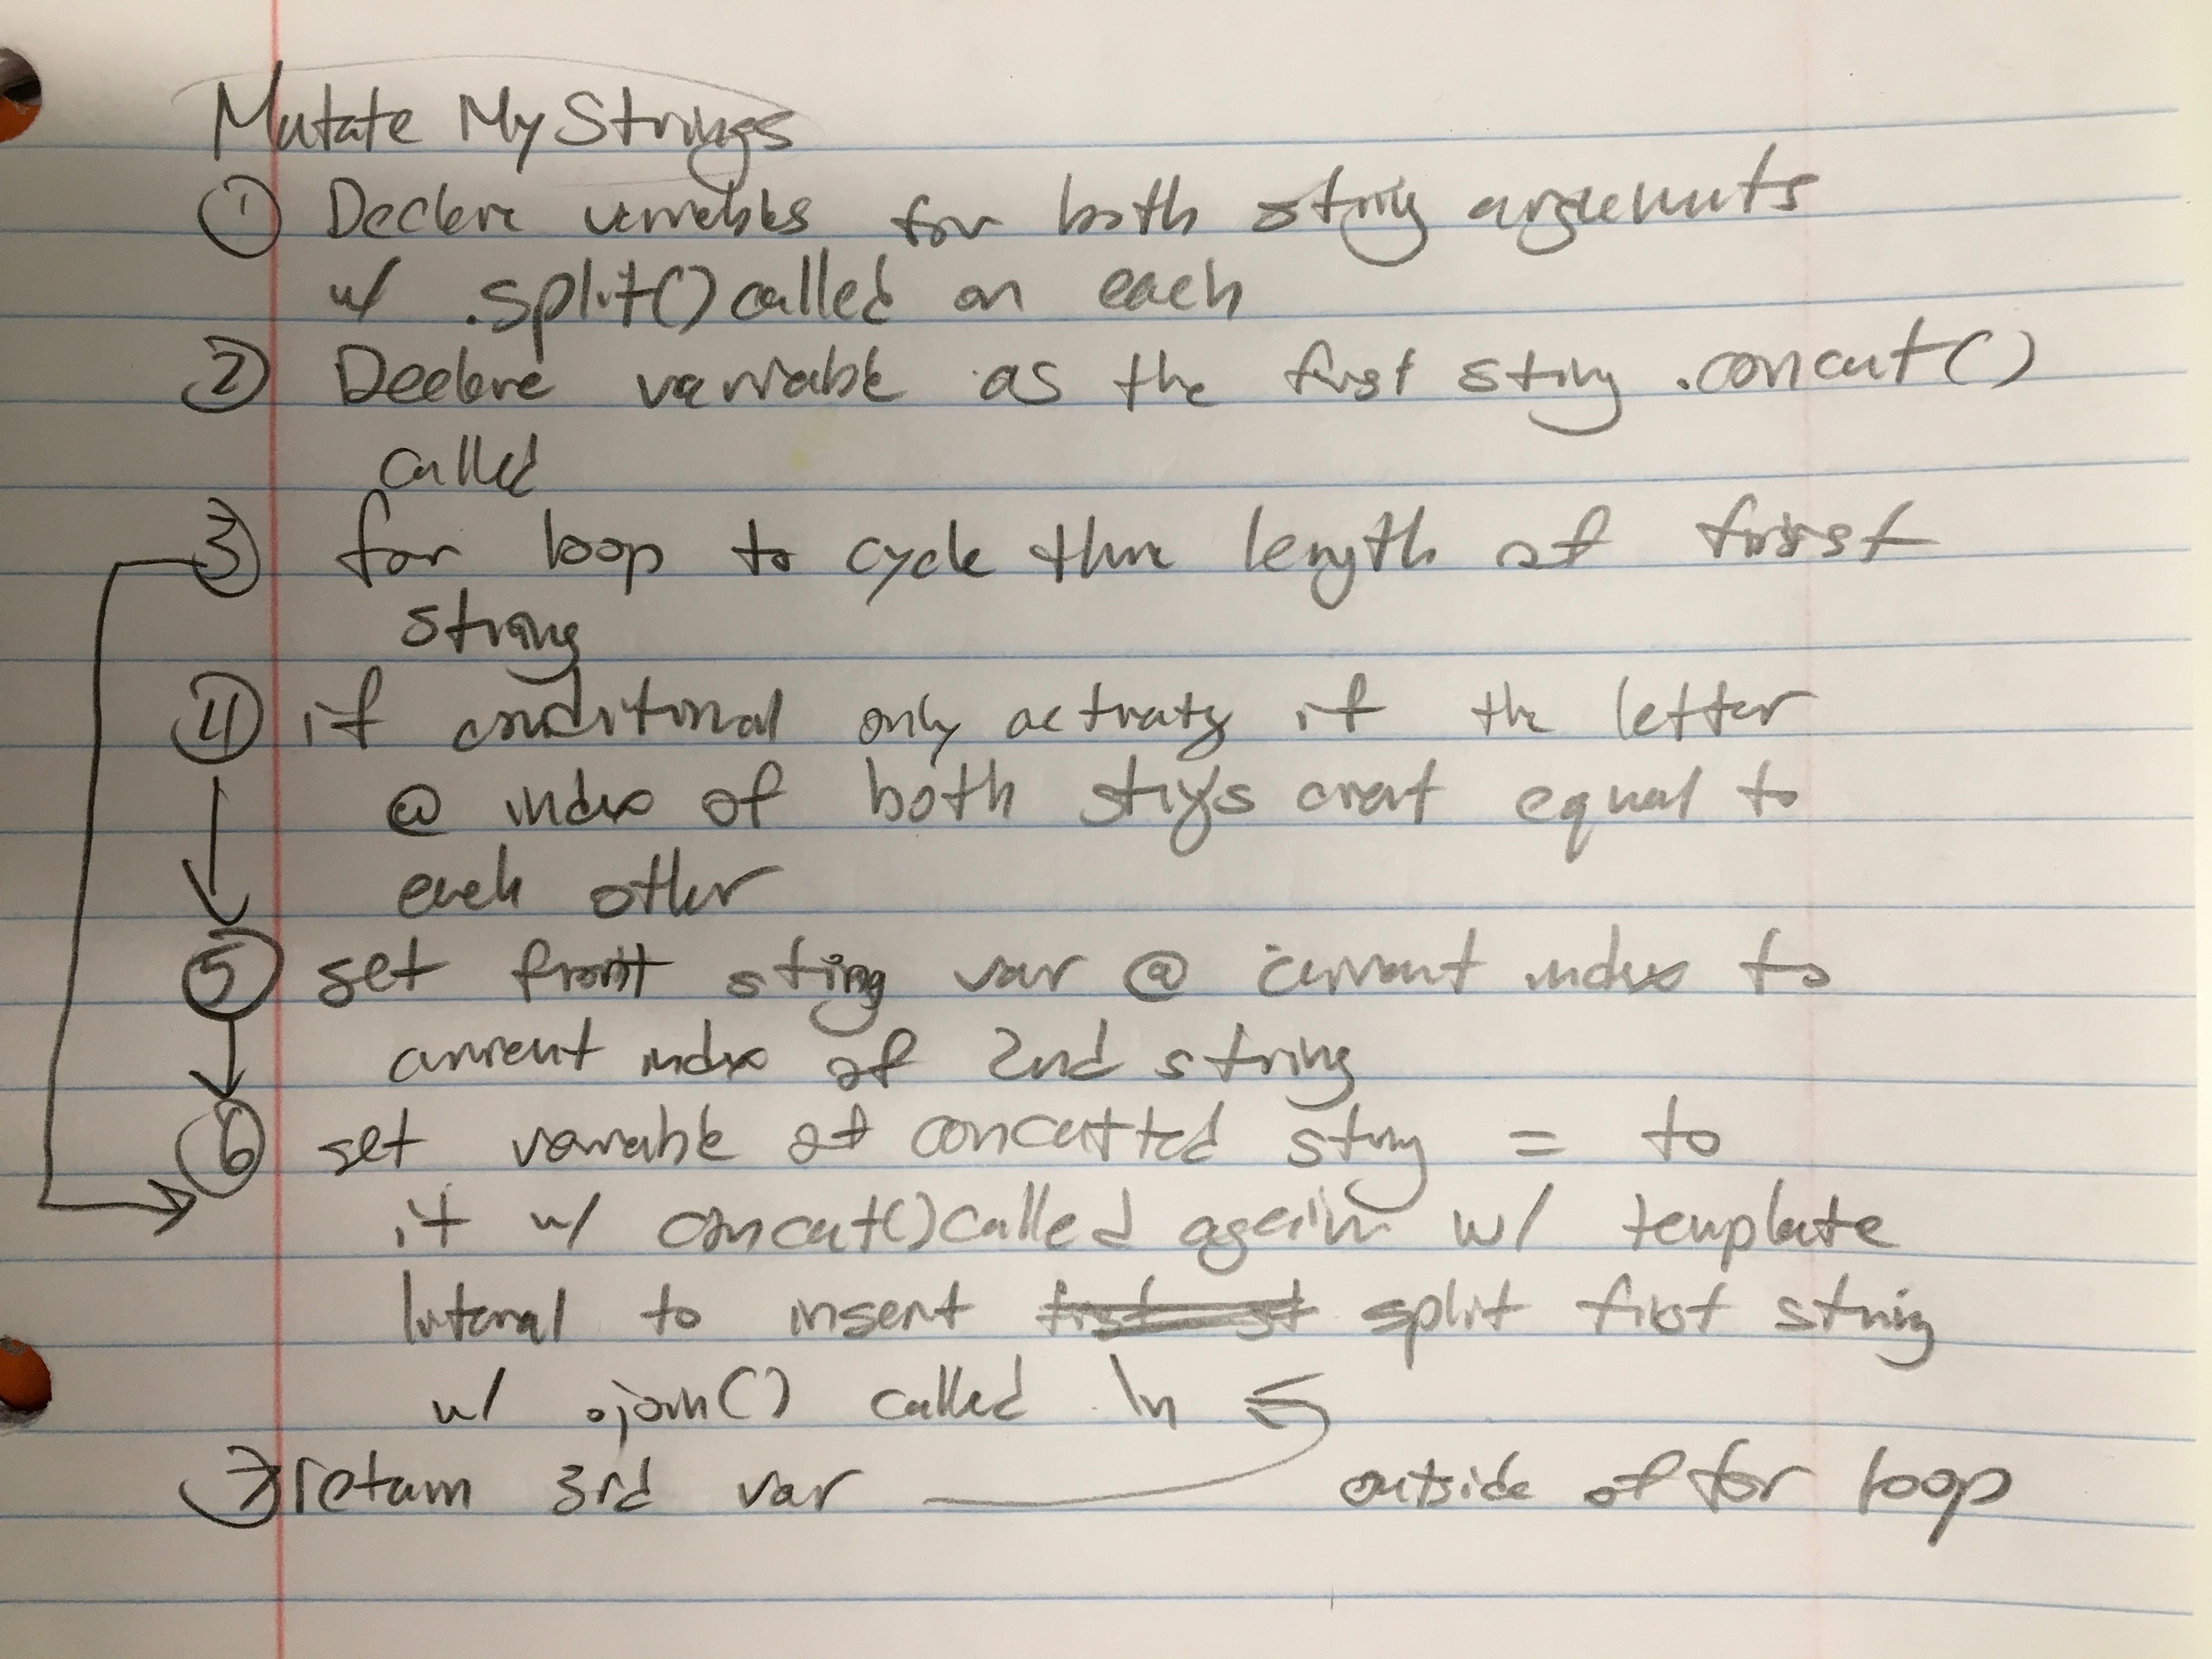 Mutate My Strings
① Declare variables for both string arguments
w/ .split() called on each
② Declare variable as the first string .concat()
called
③ for loop to cycle thru length of first
string
④ if conditional only activates if the letter
@ index of both strings arent equal to
each other
⑤ set first string var @ current index to
current index of 2nd string
⑥ set variable of concatted string = to
it w/ concat() called again w/ template
literal to insert split first string
w/ .join() called \n
⑦ return 3rd var outside of for loop